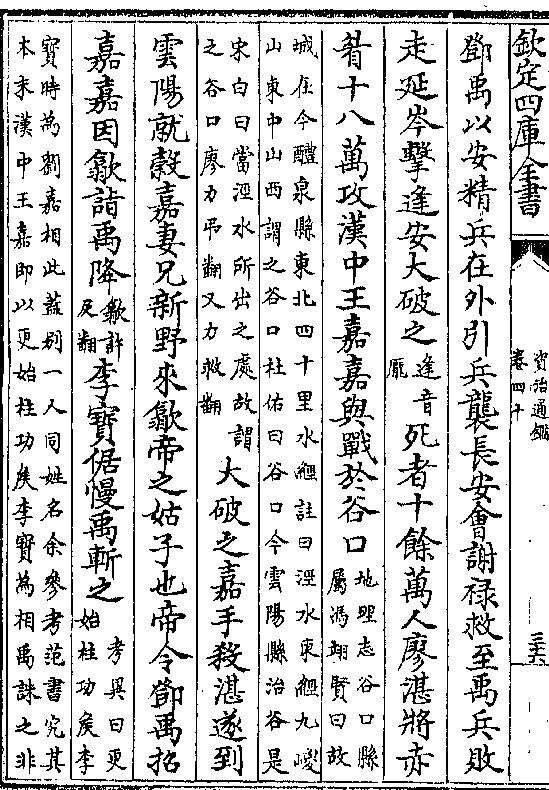 欽定四庫全書
資治通鑑
卷四十
三六
鄧禹以安精兵在外引兵襲長安會謝禄救至禹兵敗
走延岑擊逢安大破之
逢音
龎
死者十餘萬人廖湛將赤
眉十八萬攻漢中王嘉嘉與戰於谷口
地理志谷口縣
屬馮翊賢曰故
城在今醴泉縣東北四十里水經註曰涇水東經九嵕
山東中山西謂之谷口杜佑曰谷口今雲陽縣治谷是
宋白曰當涇水所出之處故謂
之谷口廖力弔翻又力救翻
大破之嘉手殺湛遂到
雲陽就穀嘉妻兄新野來歙帝之姑子也帝令鄧禹招
嘉嘉因歙詣禹降
歙許
及翻
李寶倨慢禹斬之
考異曰更
始柱功矦李
寶時為劉嘉相此葢别一人同姓名余參考范書究其
本末漢中王嘉即以更始柱功矦李寶為相禹誅之非